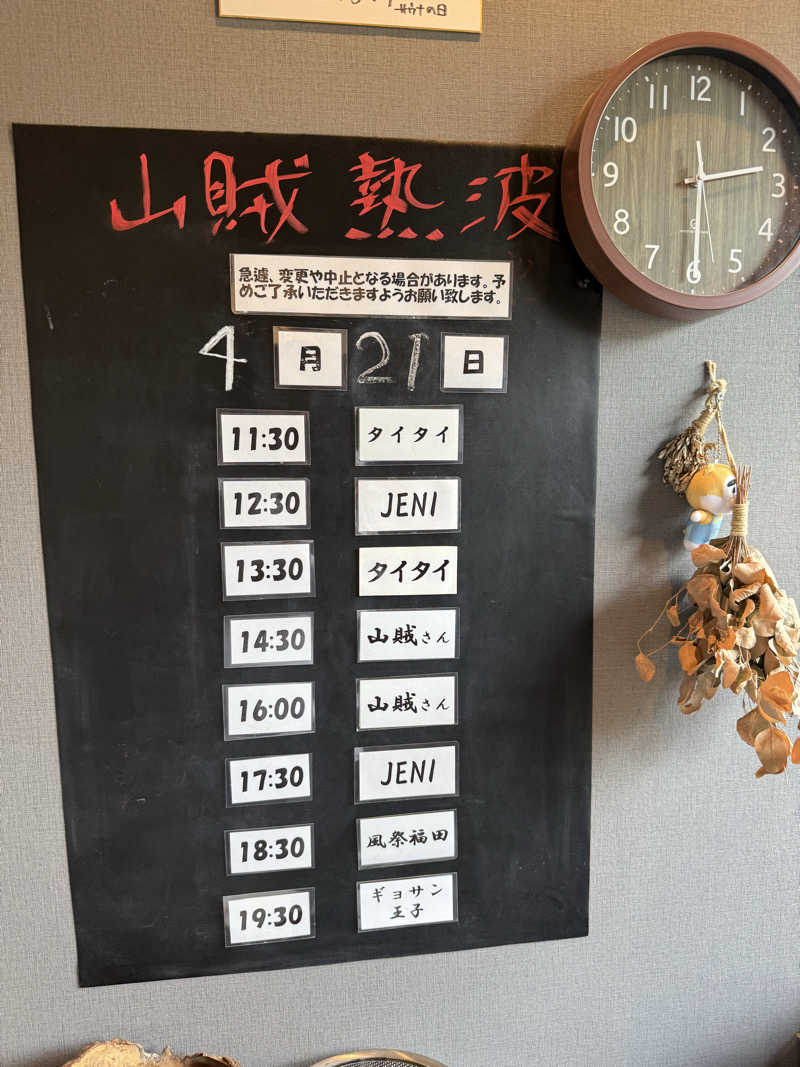 サウナの日
山賊熱波
急遽、変更や中止となる場合があります。予
めご了承いただきますようお願い致します。
4月21日
11:30 タイタイ
12:30 JENI
13:30 タイタイ
14:30 山賊さん
16:00 山賊さん
17:30 JENI
18:30 風祭福田
19:30 ギョサン
王子
12
1
2
3
4
5
6
7
8
9
10
11